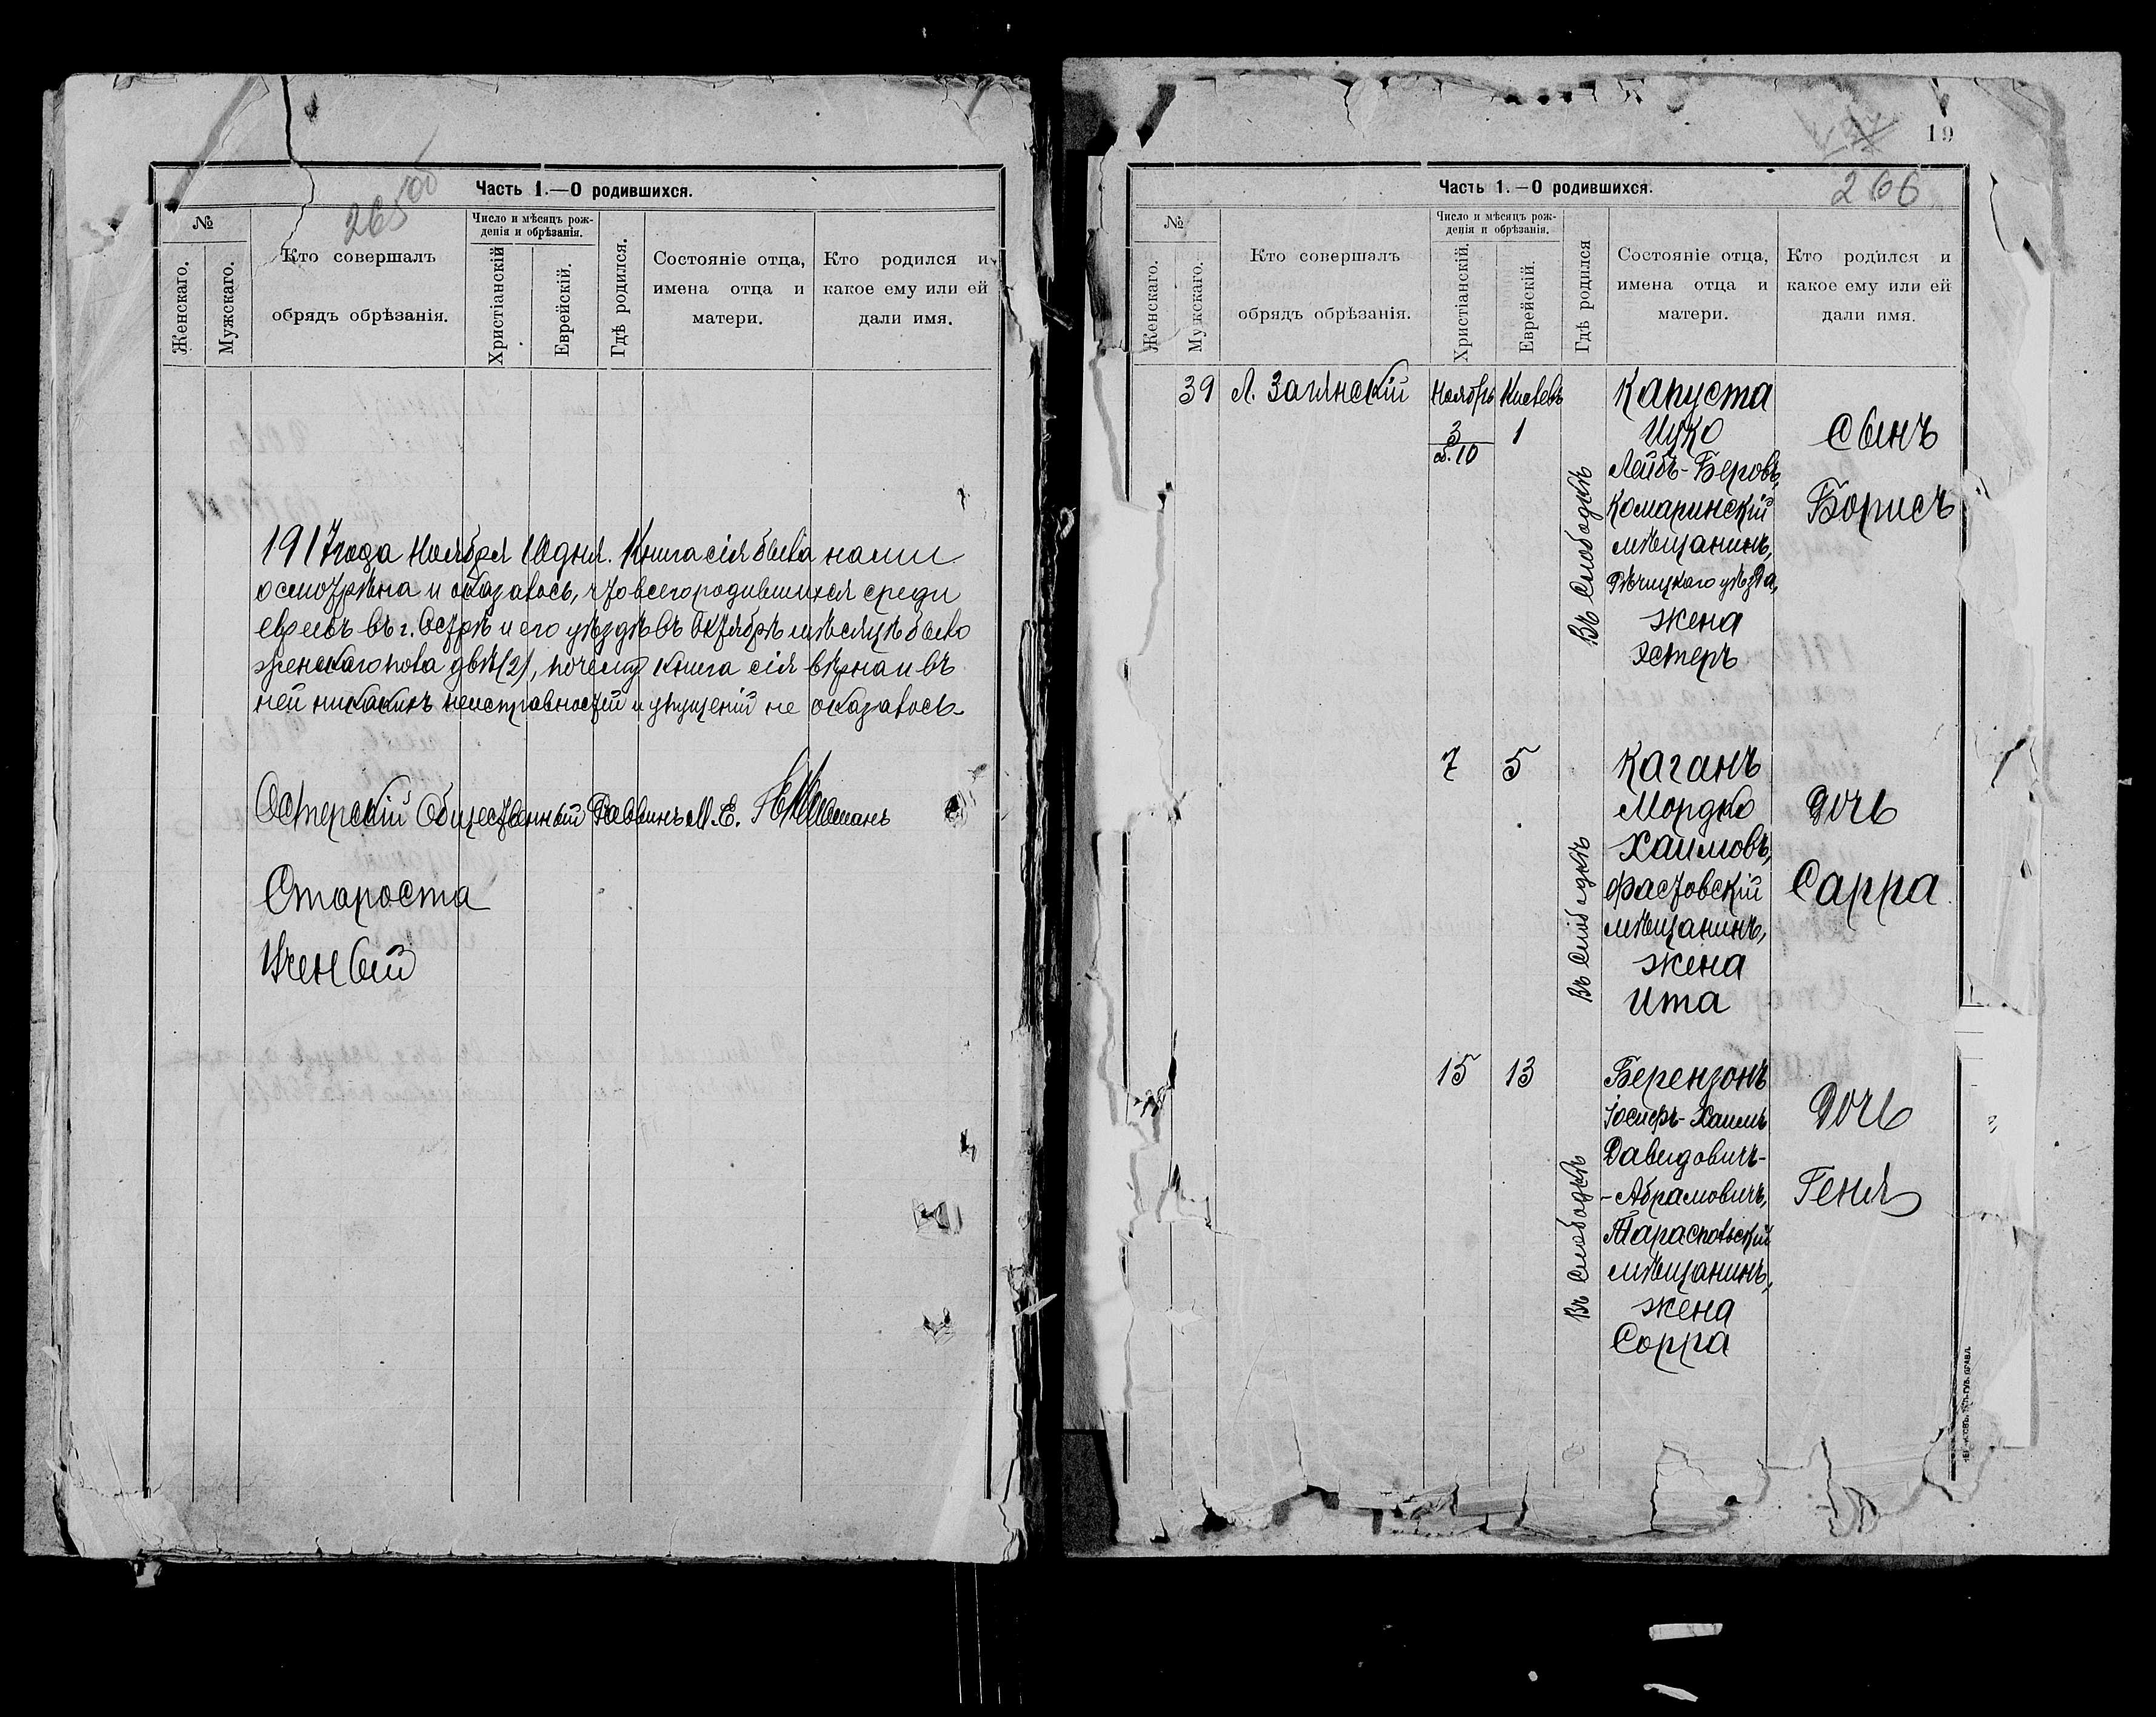 265
100
Часть 1.—О родившихся.
№
Женскаго.
Мужскаго.
Кто совершалъ
обрядъ обрѣзанія.
Число и мѣсяцъ рож-
денія и обрѣзанія.
Христіанскій
Еврейскій.
Гдѣ родился.
Состояніе отца,
имена отца и
матери.
Кто родился и
какое ему или ей
дали имя.
1917 года Ноября 10 дня. Книга сія была нами
осмотрѣна и оказалось, что всего родившихся среди
евреевъ въ г. Острѣ и его уѣздѣ въ Октябрѣ мѣсяцѣ было
женскаго пола двѣ (2), почему книга сія вѣрна и въ
ней никакихъ неисправностей и упущеній не оказалось.
Остерскій Общественный Раввинъ М. Е.
Староста
Ученый
19
266
Часть 1.—О родившихся.
№
Женскаго.
Мужскаго.
Кто совершалъ
обрядъ обрѣзанія.
Число и мѣсяцъ рож-
денія и обрѣзанія.
Христіанскій.
Еврейскій.
Гдѣ родился
Состояніе отца,
имена отца и
матери.
Кто родился и
какое ему или ей
дали имя.
39 Л. Заглнскій Ноябрь Кислевъ
3 1
об. 10
Въ Слободкѣ
Капуста
Ицко
Лейбъ-Беровъ,
Комаринскій
мѣщанинъ,
Рѣчицкого уѣзда,
жена
Эстеръ
Сынъ
Борисъ
7 5
Въ Слободкѣ
Каганъ
Мордко
Хаимовъ,
Фастовскій
мѣщанинъ,
жена
Ита
Дочь
Сарра
15 13
Въ Слободкѣ
Берензонъ
Іосифъ-Хаимъ
Давидовичъ-
-Абрамовичъ,
Тираспольскій
мѣщанинъ,
жена
Сорра
Дочь
Геня